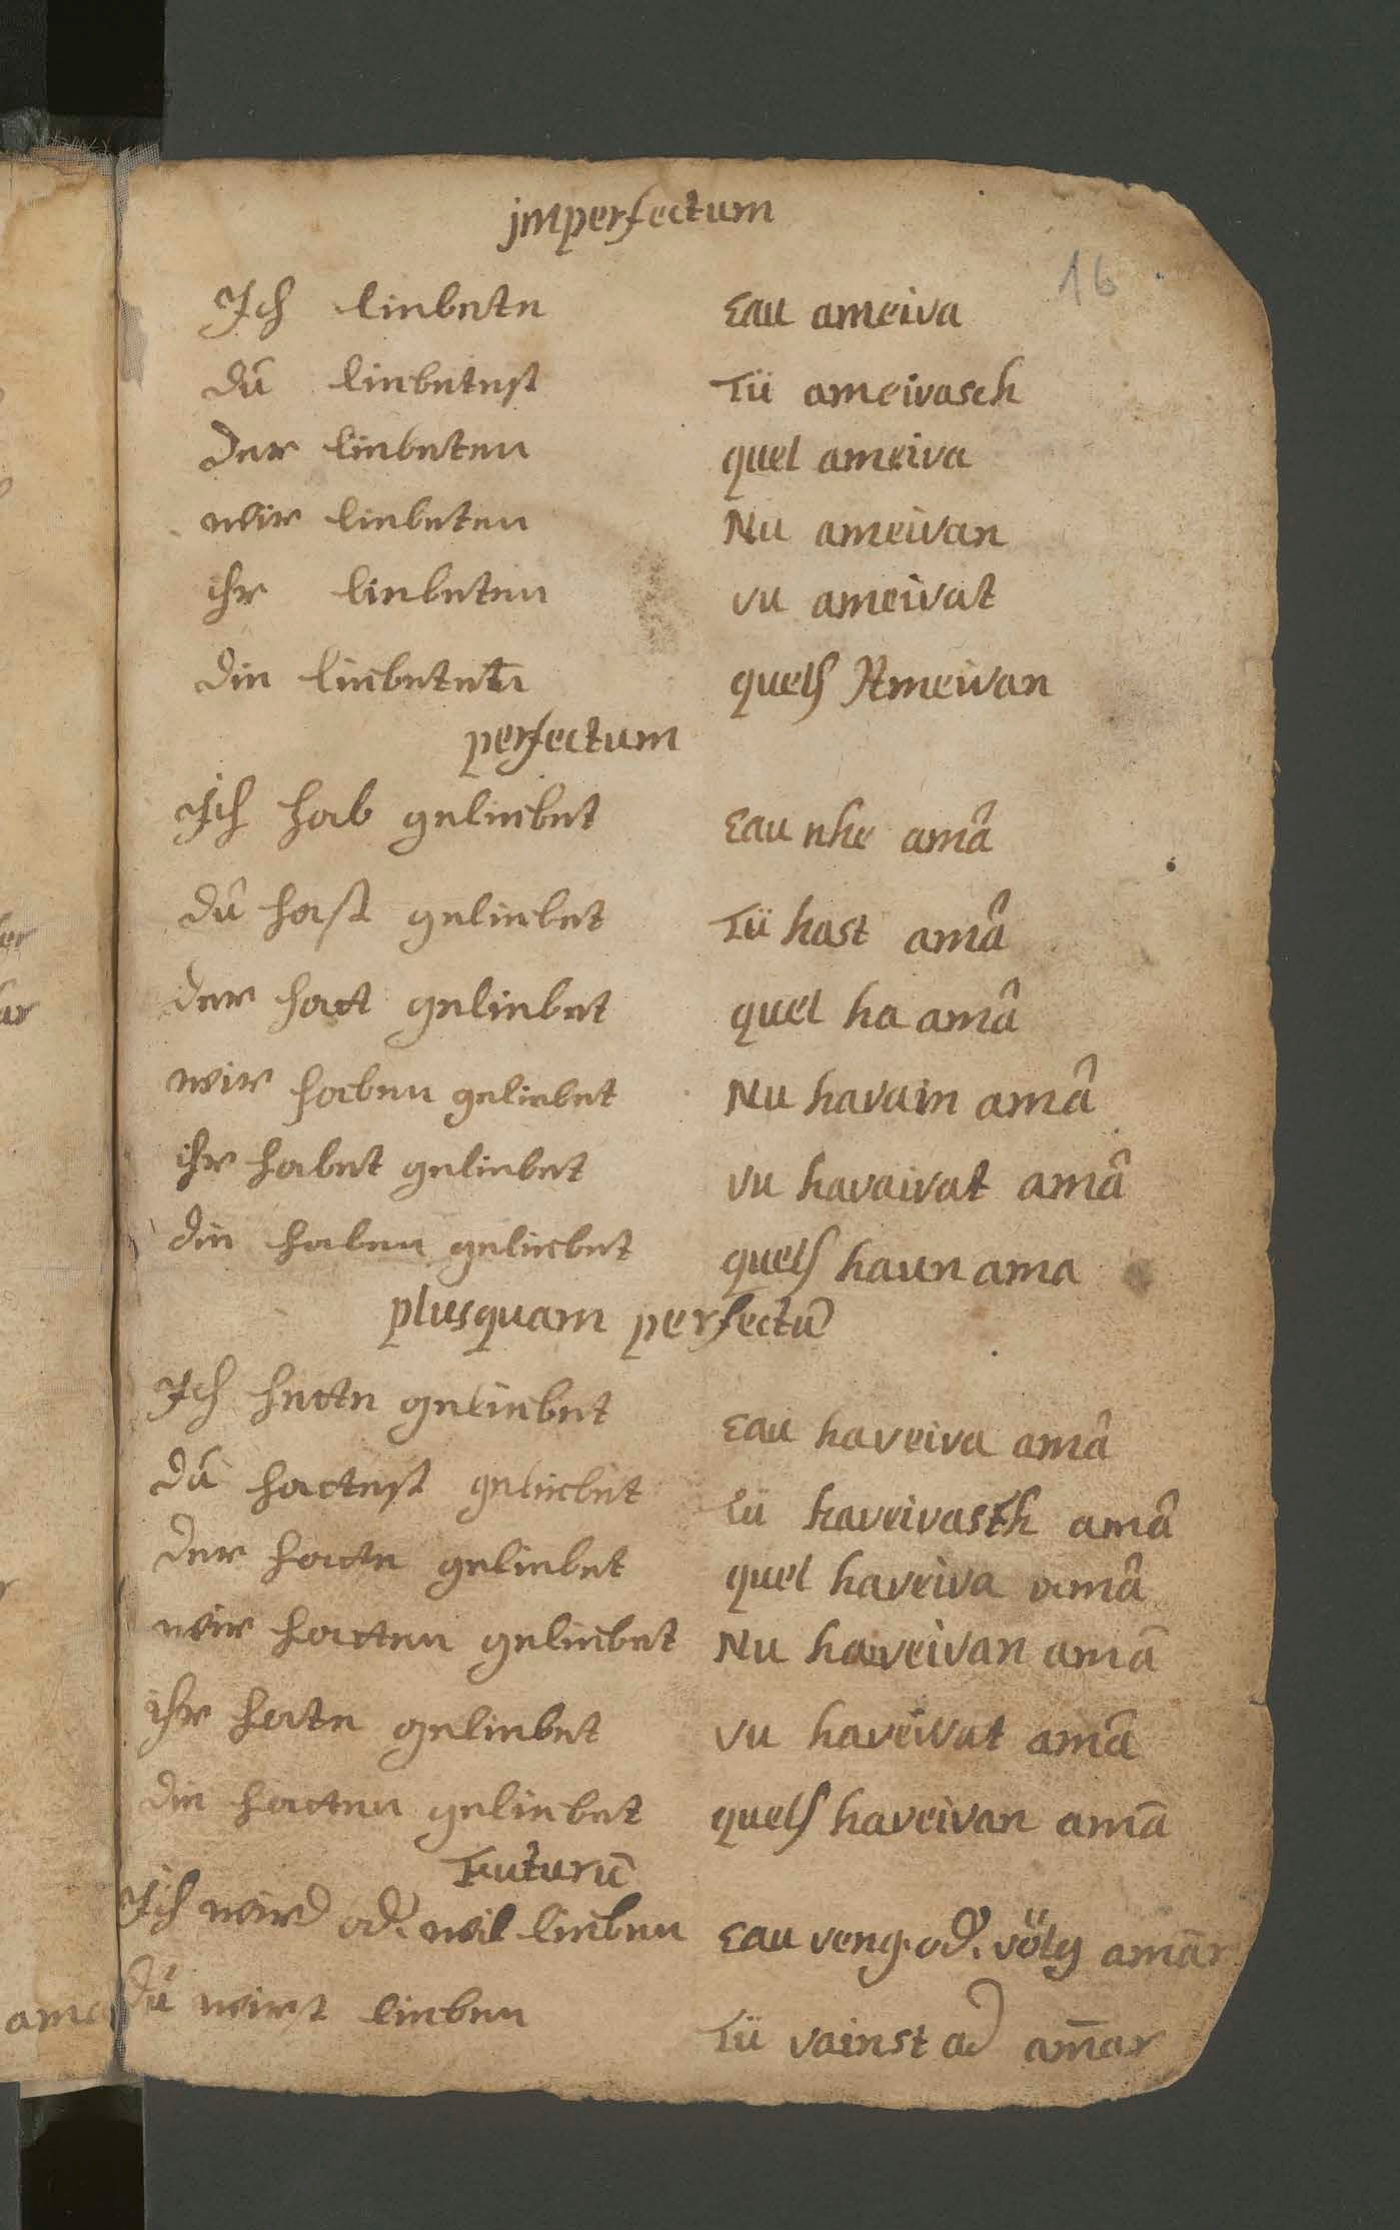 jmperfectum
16
Ich liebete Eau ameiva
dû liebetest Tü ameivasch
der liebeten quel ameiva
wir liebeten Nu ameivan
ihr liebeten vu ameivat
die liebeten quels Ameivan
perfectum
Ich hab geliebet Eau nhe amâ
dû hast geliebet Tü hast amâ
der hatt geliebet quel ha amâ
wir haben geliebet Nu havain amâ
ihr habet geliebet vu havaivat amâ
die haben geliebet quels haun ama
plusquam perfectū
Ich hette geliebet Eau haveiva amâ
dû hattest geliebet tü haveivasch amâ
der hatte geliebet quel haveiva amâ
wir hatten geliebet Nu haveivan amā
ihr hate geliebet vu haveivat amā
die hatten geliebet quels haveivan amā
Futurū
Ich wird od. wil lieben Eau veng. od. völg amār
dû wirst lieben Tü vainst ad am̄ar